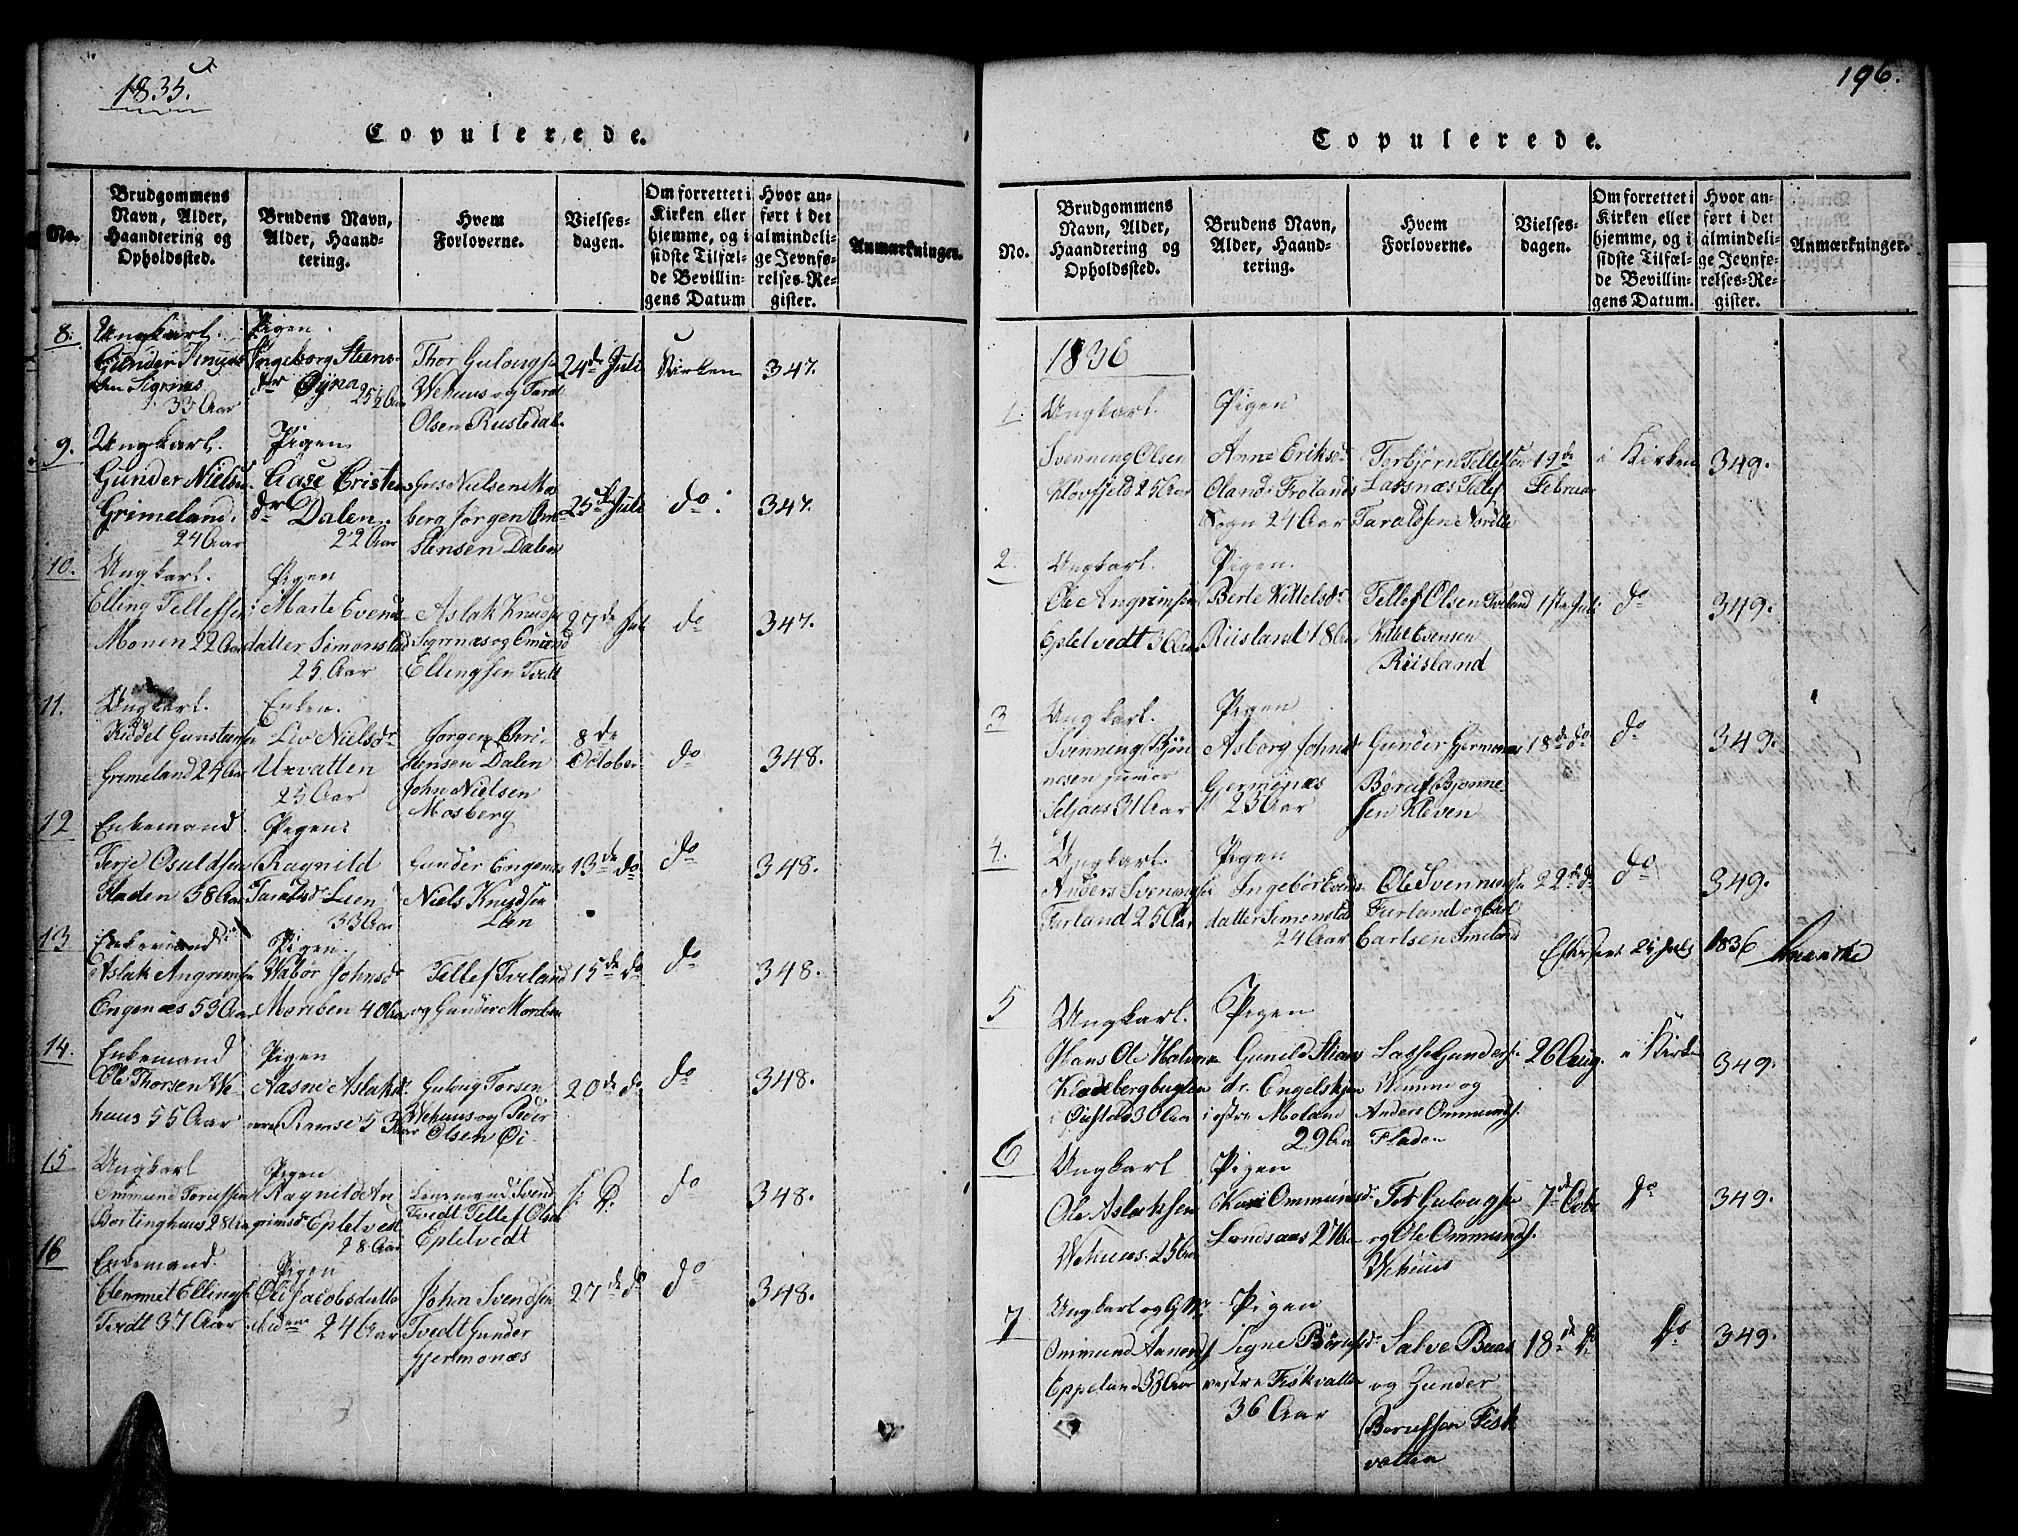 1835.
Copulerede.
No.
Brudgommens
Navn, Alder,
Haandtering og
Opholdssted.
Brudens Navn,
Alder, Haand-
tering.
Hvem
Forloverne.
Vielses-
dagen.
Om forrettet i
Kirken eller
hjemme, og i
sidste Tilfæl-
de Bevillin-
gens Datum
Hvor an-
ført i det
almindeli-
ge Jevnfø-
relses-Re-
gister.
Anmærkninger.
8.
Ungkarl.
Gunder Knuds
sen Sigrnæs
33 Aar
Pigen.
Ingeborg Steens-
dr Øyna 25½ Aar
Thor Gulovgs
Wehuus og Tarel
Olsen Rustedal
24de Juli
Kirken
347.
9.
Ungkarl.
Gunder Nielsen
Grimeland.
24 Aar
Pigen
Aase Cristens
dr Dalen.
22 Aar
Nielsen Mos
berg Jørgen Cri
stensen Dalen
25de Juli
do:
347.
10.
Ungkarl.
Elling Tellefsen
Monen 22 Aar
Pigen
Marte Evends
datter Simonstad
25 Aar
Aslak Knuds
Sigrnæs og Omund
Ellingsen Tvedt
27de Juli
do
347.
11.
Ungkarl.
Kiddel Gunstensen
Grimeland 24 Aar
Enken.
Liv Nielsdr
Uxvatten
25 Aar
Jørgen Chri-
stensen Dalen
John Nielsen
Mosberg
8de
October
do
348.
12
Enkemand
Terje Osuldsen
Fladen 58 Aar
Pigen:
Ragnild
Taraldsdr Lien
33 Aar
Gunder Engenæs
Niels Knudsen
Lien
13de do
do
348.
13
Enkemand
Aslak Angrimsen
Engenæs 53 Aar
Pigen.
Wabør Johnsdr
Morcben 40 Aar
Tellef Tveland
og Gunder Morcben
15de do
do
348.
14.
Enkemand
Ole Thorsen We-
huus 55 Aar
Pigen
Aasne Aslaksdr
Ramse 53 Aar
Gulovg Torsen
Wehuus og Peder
Olsen Øi-
20de do
do
348.
15
Ungkarl
Ommund Torjussen
Bortinghuus 28 Aar
Pigen
Ragnild An
grimsdr Epletvedt
28 Aar
Lensmand Svend
Tvedt Tellef Olsen
Epletvedt
s: D:
do
348.
16
Enkemand.
Clemmet Ellings
Tvedt 37 Aar
Pigen
Oli Jacobsdatter
Neden 24 Aar
John Svendsen
Tvedt Gunder
Gjermonæs
27de do
do
348.
196.
Copulerede.
No.
Brudgommens
Navn, Alder,
Haandtering og
Opholdssted.
Brudens Navn,
Alder, Haand-
tering.
Hvem
Forloverne.
Vielses-
dagen.
Om forrettet i
Kirken eller
hjemme, og i
sidste Tilfæl-
de Bevillin-
gens Datum.
Hvor an-
ført i det
almindeli-
ge Jevnfø-
relses-Re-
gister.
Anmærkninger.
1836
1.
Ungkarl.
Svenning Olsen
Klovfjeld 25 Aar
Pigen
Anne Eriksdr
Oland i Frolands
Sogn 24 Aar
Torbjørn Tellefsen
Laxnæs Tellef
Taraldsen Nordli
19de
Februar
i Kirken
349.
2.
Ungkarl.
Ole Angrimsen
Epletvedt 30 Aar
Pigen.
Berte Kittelsdr
Riisland 18 Aar
Tellef Olsen Tveland
Kittel Evensen
Riisland
1ste Juli
do
349.
3
Ungkarl.
Svenning Bjøn
nesen junior
Seljaas 31 Aar
Pigen
Asborg Johnsdr
Germonæs
23 Aar
Gunder Germonæs
Børuf Bjønne-
sen Kleven
18de do
do
349.
4.
Ungkarl.
Anders Svennings
Furland 25 Aar
Pigen
Ingebor Evends
datter Simonstad
24 Aar
Ole Svennings
Furland og Carl
Carlsen Simeland
22de do
do
349.
Efterseet 25 Juli 1836
5
Ungkarl.
Hans Ole Halvors
Kladebergbugten
i Øiestad 30 Aar
Pigen
Gunild Stians
dr. Engelskjøn
i østre Moland
29 Aar
Lasse Gunders.
og
Anders Ommunds.
Fladen
26 Aug.
i Kirken
349.
6
Ungkarl
Ole Aslacksen
Wehuus. 25 Aar
Pigen
Kari Ommundsdr
Landsaas 27 Aar
Tor Gulovgs
og Ole Ommunds.
Wehuus
7de Octbr
do
349.
7
Ungkarl og
Ommund Aanons
Eppeland 33 Aar
Pigen
Signe Børufsdr
vestre Fiskvatten
36 Aar
Salve Baas
og Gunder
Børufsen Fisk
vatten
18de do
do
349.